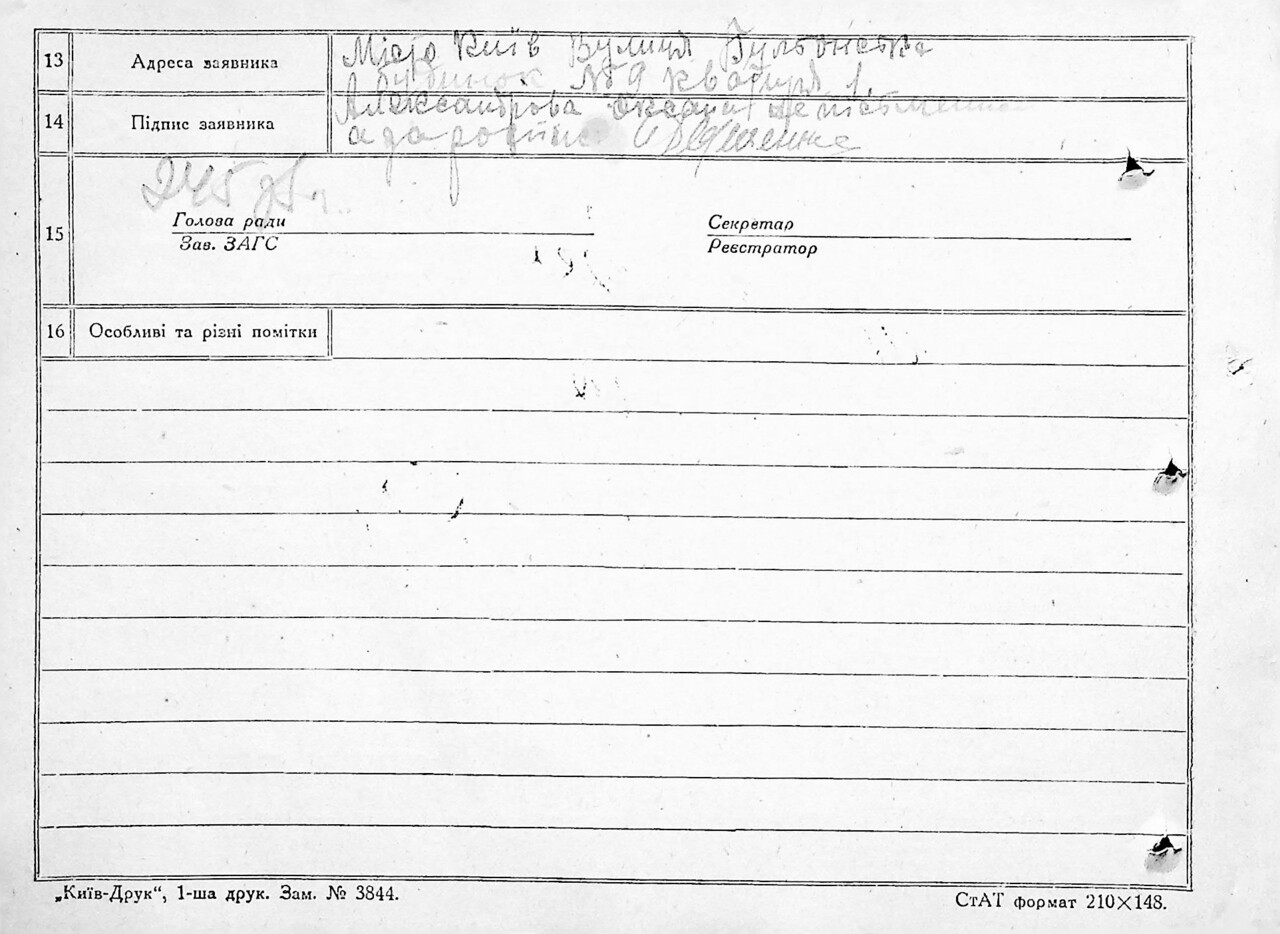 13 Адреса заявника Місто Київ Вулиця
будинок № 9 квартиря 1
14 Підпис заявника Александрова неписьменна
а за
245
Голова ради Секретар
15
Зав. ЗАГС Реєстратор
16 Особливі та різні помітки
„Київ-Друк“, 1-ша друк. Зам. № 3844. СтАТ формат 210×148.